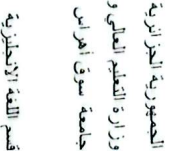 الجمهورية الجزائرية
وزارة التعليم العالي و
جامعة سوق أهراس
قسم اللغة الانجليزية